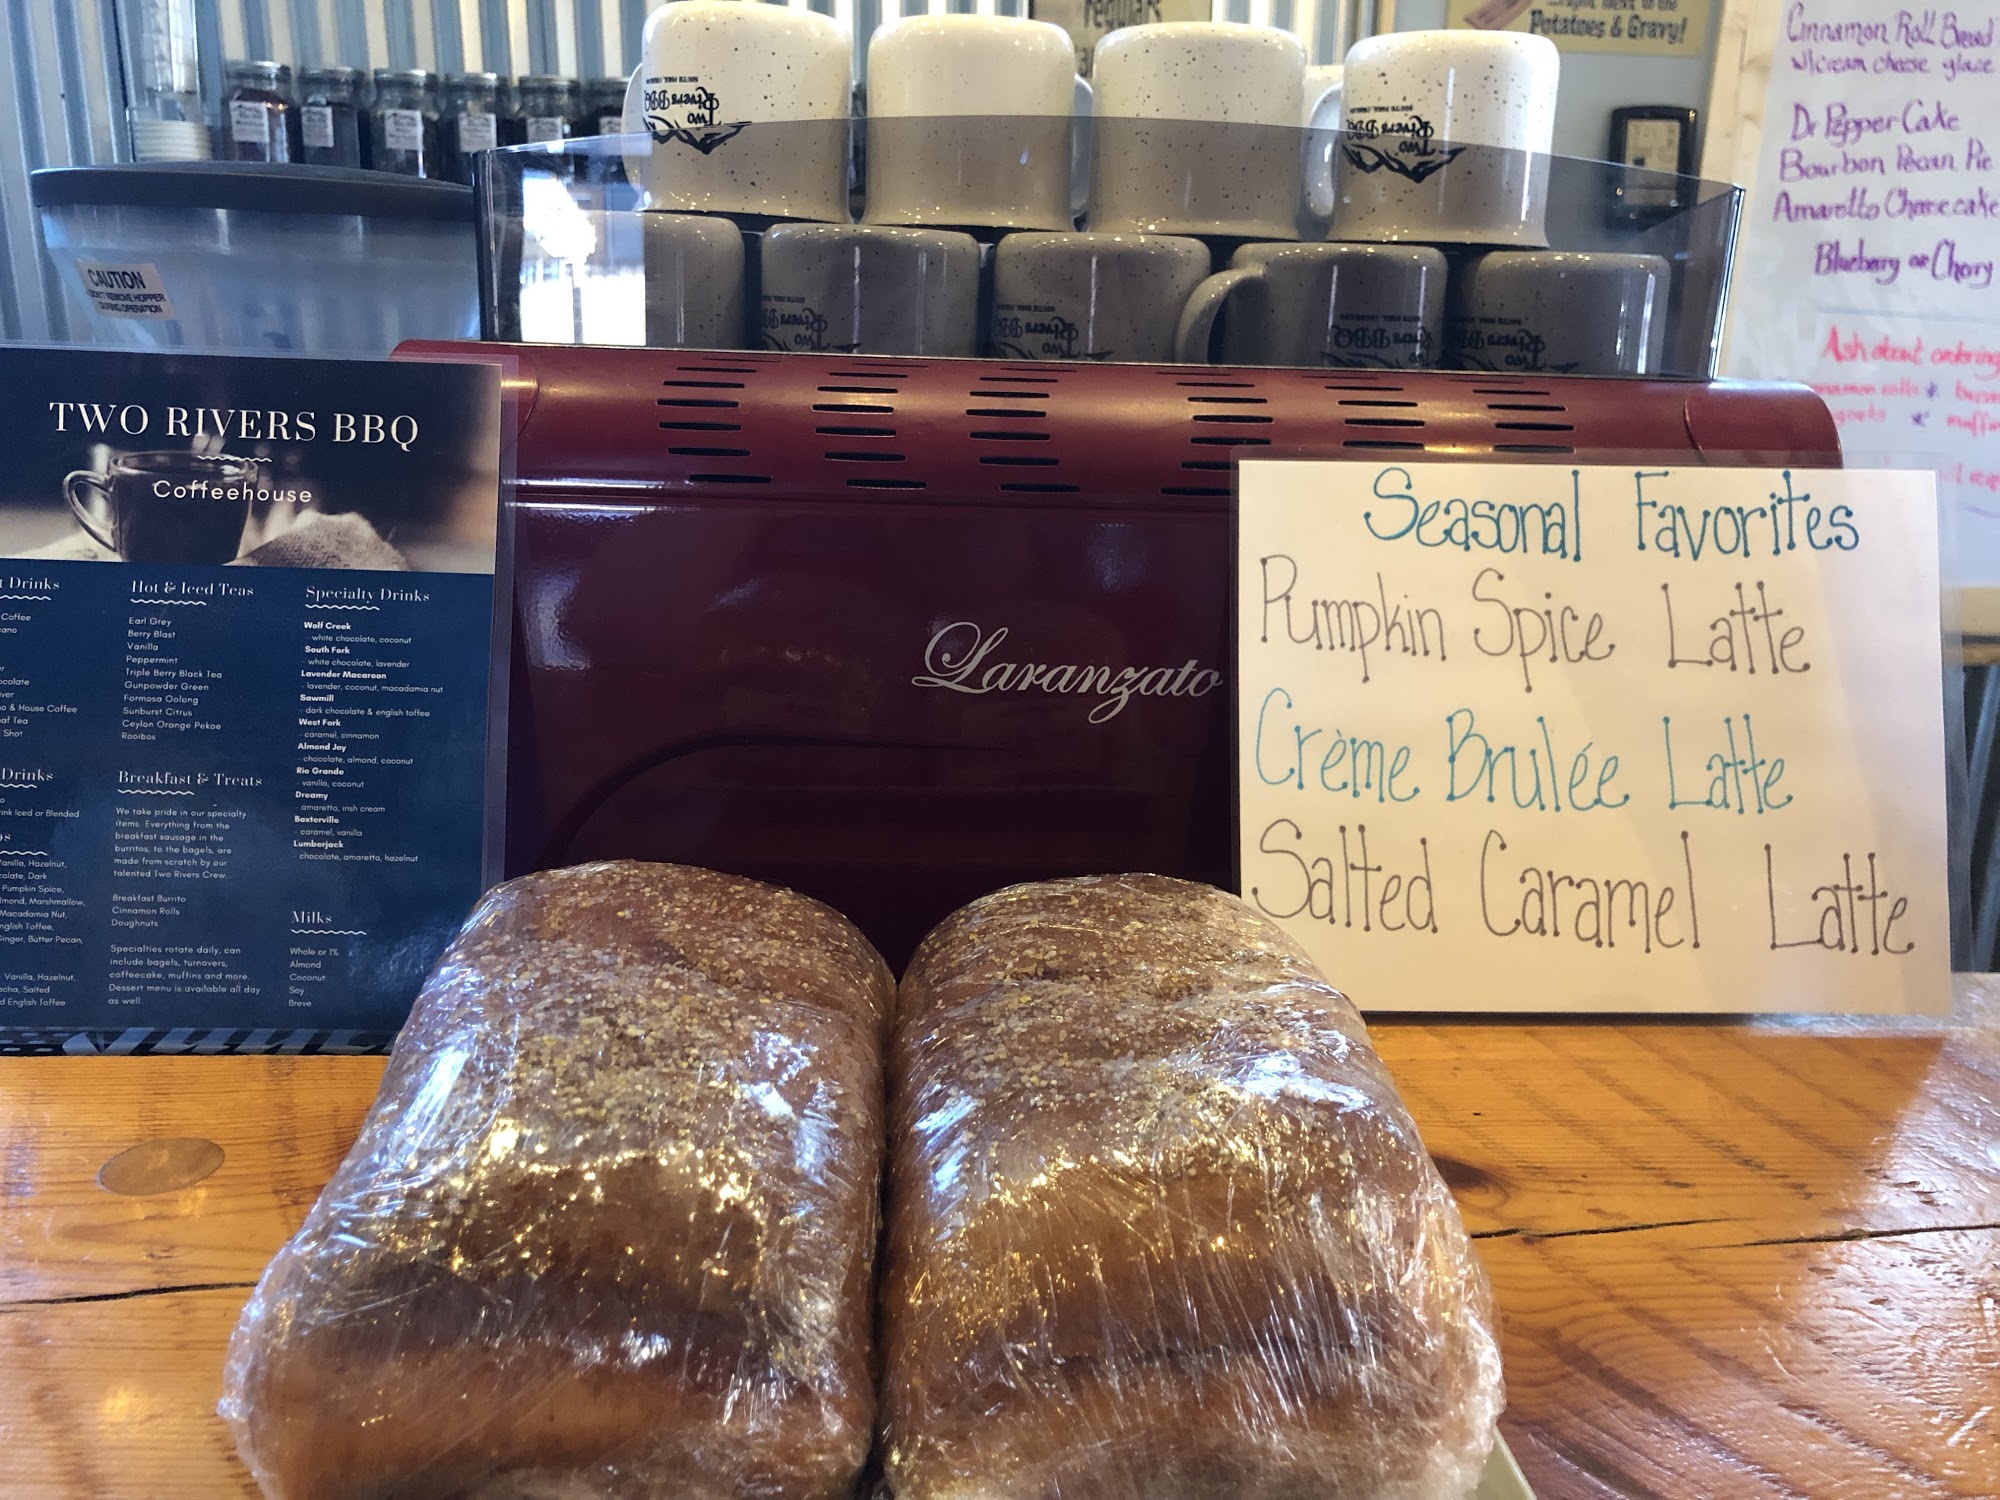 regulars
Potatoes & Gravy!
Cinnamon Roll Bread
w/cream cheese glaze
Dr Pepper Cake
Bourbon Pecan Pie
Amaretto Cheesecake
Blueberry or Cherry
Ask about ordering
muffin
SOUTH FORK, COLORADO
Two
Rivers BBQ
Two
Rivers BBQ
Two
Rivers BBQ
Two
Rivers BBQ
Two
Rivers BBQ
CAUTION
DON'T REMOVE HOPPER
DURING OPERATION
TWO RIVERS BBQ
Coffeehouse
Drinks
Coffee
& House Coffee
Tea
Shot
Drinks
Iced or Blended
Vanilla, Hazelnut,
Dark
Pumpkin Spice,
Marshmallow,
Macadamia Nut,
English Toffee,
Ginger, Butter Pecan,
Vanilla, Hazelnut,
Salted
English Toffee
Hot & Iced Teas
Earl Grey
Berry Blast
Vanilla
Peppermint
Triple Berry Black Tea
Gunpowder Green
Formosa Oolong
Sunburst Citrus
Ceylon Orange Pekoe
Rooibos
Breakfast & Treats
We take pride in our specialty
items. Everything from the
breakfast sausage in the
burritos, to the bagels, are
made from scratch by our
talented Two Rivers Crew.
Breakfast Burrito
Cinnamon Rolls
Doughnuts
Specialties rotate daily, can
include bagels, turnovers,
coffeecake, muffins and more.
Dessert menu is available all day
as well.
Specialty Drinks
Wolf Creek
- white chocolate, coconut
South Fork
- white chocolate, lavender
Lavender Macaroon
- lavender, coconut, macadamia nut
Sawmill
- dark chocolate & english toffee
West Fork
- caramel, cinnamon
Almond Joy
- chocolate, almond, coconut
Rio Grande
- vanilla, coconut
Dreamy
- amaretto, irish cream
Baxterville
- caramel, vanilla
Lumberjack
- chocolate, amaretto, hazelnut
Milks
Whole or 1%
Almond
Coconut
Soy
Breve
Laranzato
Seasonal Favorites
Pumpkin Spice Latte
Crème Brulée Latte
Salted Caramel Latte